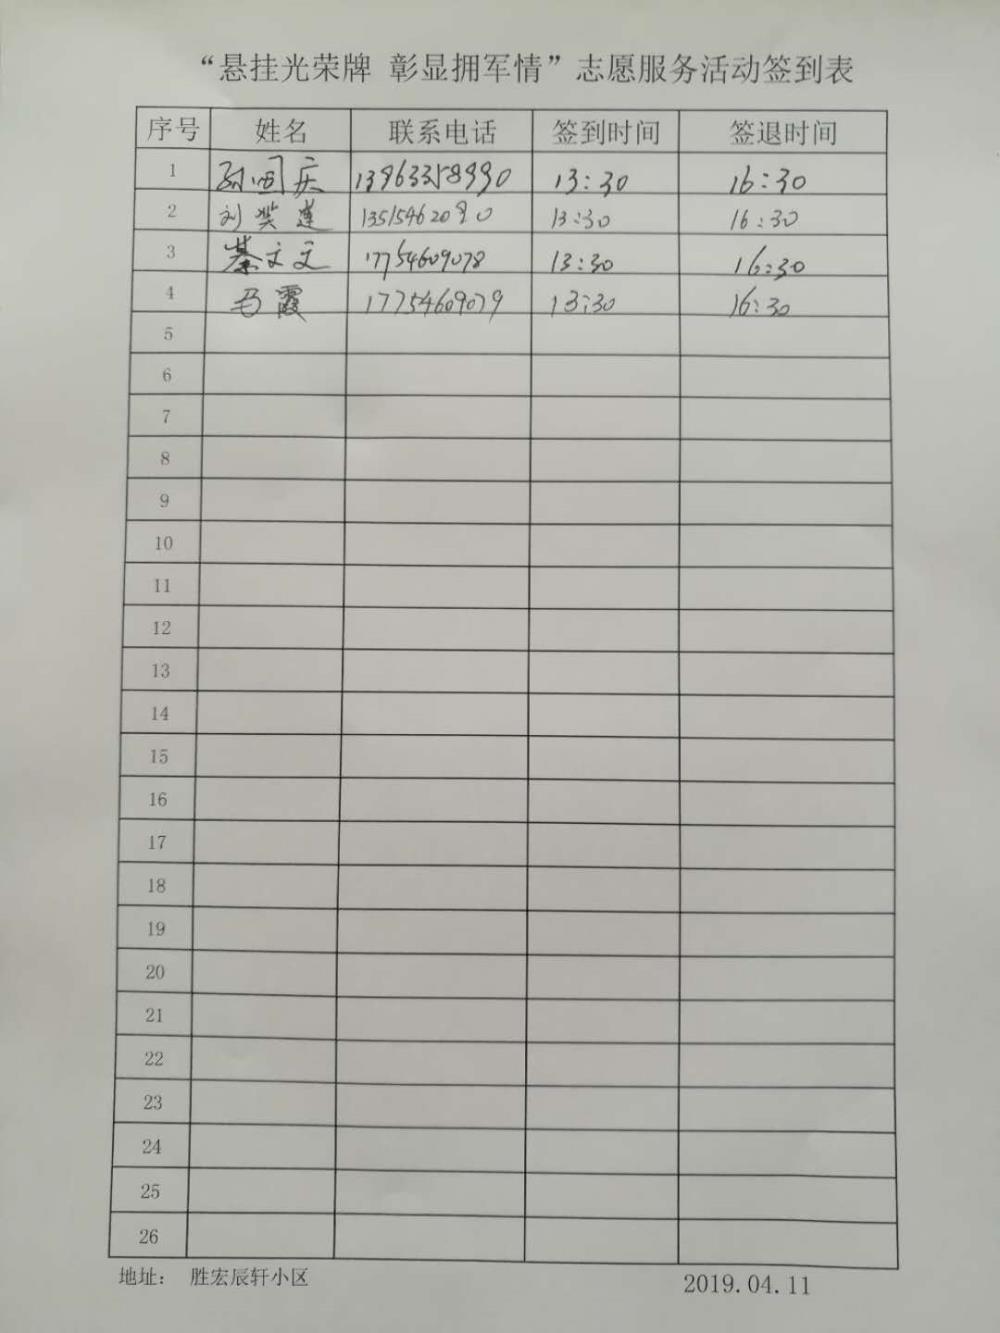 “悬挂光荣牌 彰显拥军情”志愿服务活动签到表
序号 姓名 联系电话 签到时间 签退时间
1 孙国庆 13963358990 13:30 16:30
2 刘 莲 13515462090 13:30 16:30
3 綦文文 17754609078 13:30 16:30
4 马霞 17754609079 13:30 16:30
5
6
7
8
9
10
11
12
13
14
15
16
17
18
19
20
21
22
23
24
25
26
地址： 胜宏辰轩小区 2019.04.11